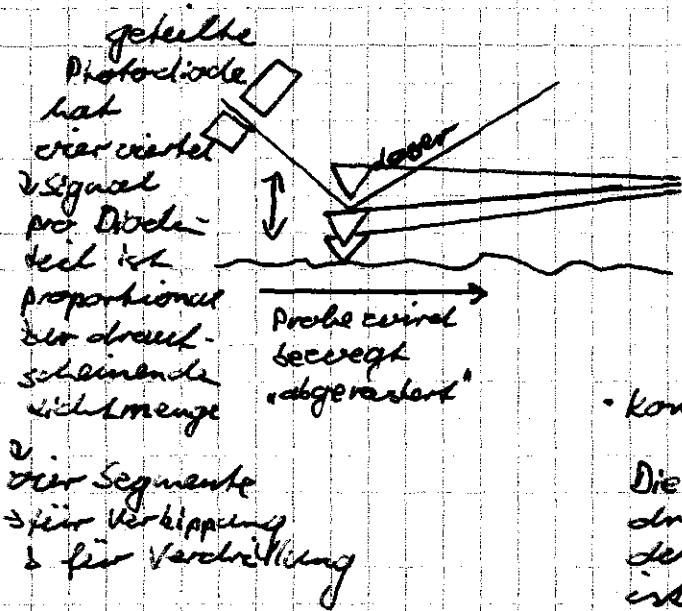 geteilte
Photodiode
hat
vier viertel
↳ Signal
pro Dioden-
teil ist
proportional
zur drauf-
scheinenden
Lichtmenge
↳
vier Segmente
→ für Verkippung
↳ für Verdrillung
Laser
Probe wird
bewegt
„abgerastert"
• Kon
Die
dr
de
ist